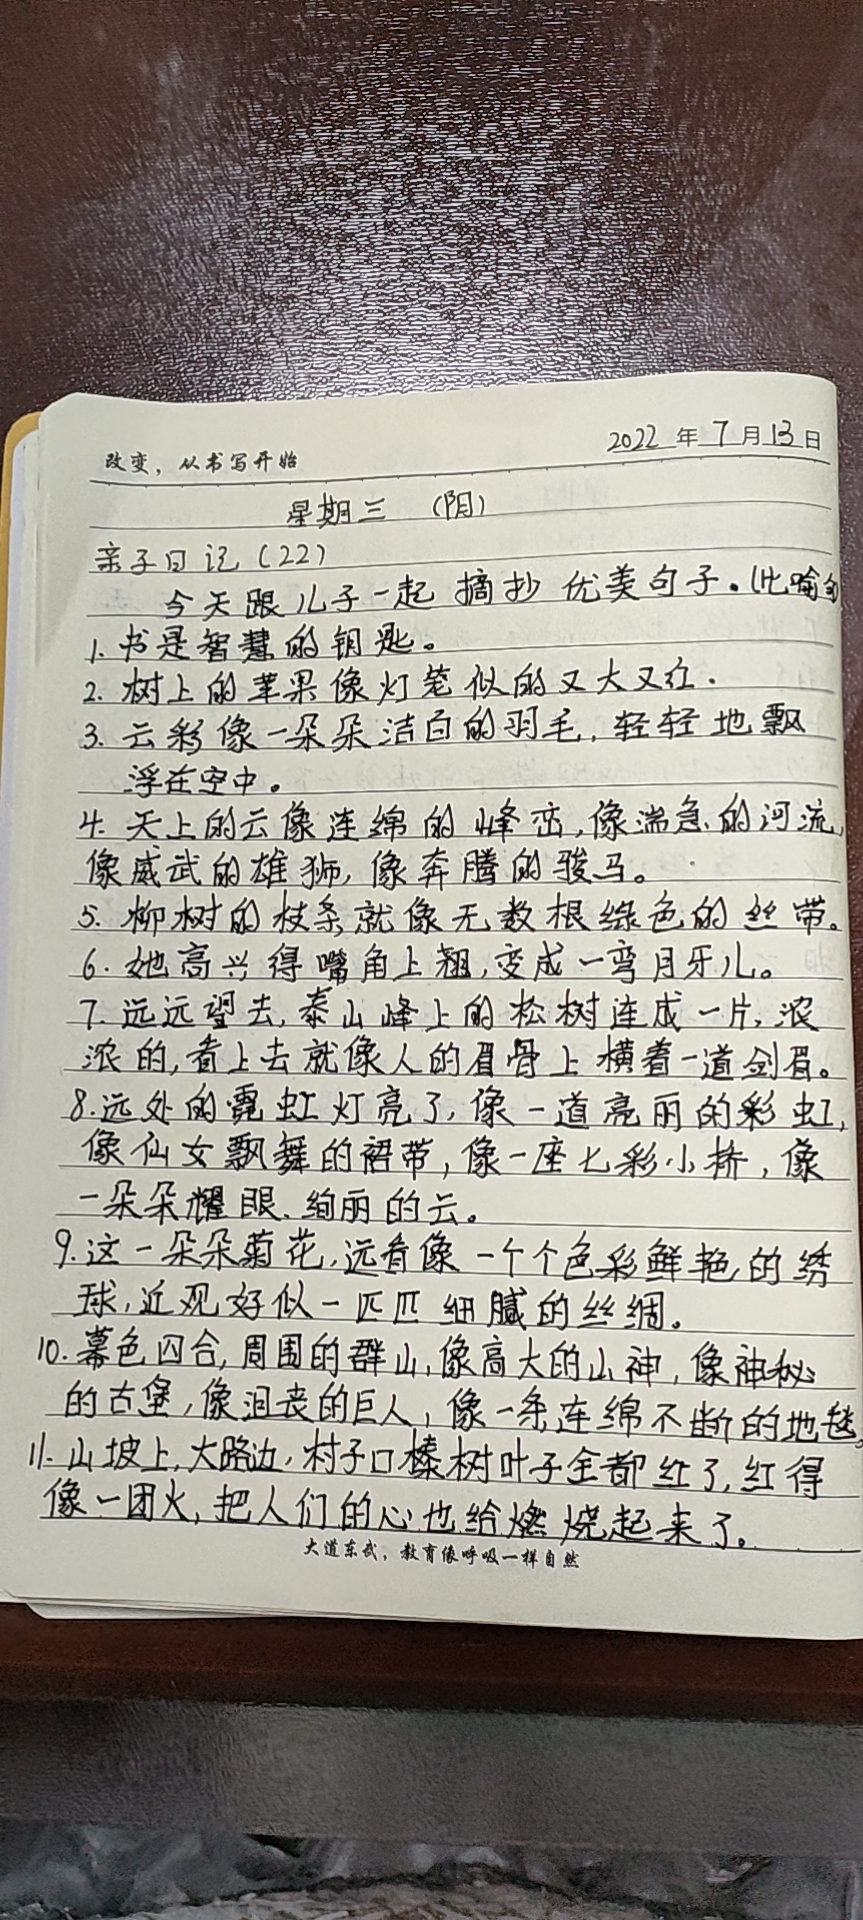 改变，从书写开始
2022 年 7 月 13 日
星期三 （阴）
亲子日记（22）
今天跟儿子一起 摘抄 优美句子。（比喻句
1. 书是智慧的钥匙。
2. 树上的苹果像灯笼似的又大又红.
3. 云彩像一朵朵洁白的羽毛，轻轻地飘
浮在空中。
4. 天上的云像连绵的峰峦，像湍急的河流，
像威武的雄狮，像奔腾的骏马。
5. 柳树的枝条就像无数根绿色的丝带。
6. 她高兴得嘴角上翘，变成一弯月牙儿。
7. 远远望去，泰山峰上的松树连成一片，浓
浓的，看上去就像人的眉骨上横着一道剑眉。
8. 远处的霓虹灯亮了，像一道亮丽的彩虹，
像仙女飘舞的裙带，像一座七彩小桥，像
一朵朵耀眼、绚丽的云。
9. 这一朵朵菊花，远看像一个个色彩鲜艳的绣
球，近观好似一匹匹细腻的丝绸。
10. 幕色四合，周围的群山，像高大的山神，像神秘
的古堡，像沮丧的巨人，像一条连绵不断的地毯。
11. 山坡上，大路边，村子口榛树叶子全都红了，红得
像一团火，把人们的心也给燃烧起来了。
大道东武，教育像呼吸一样自然